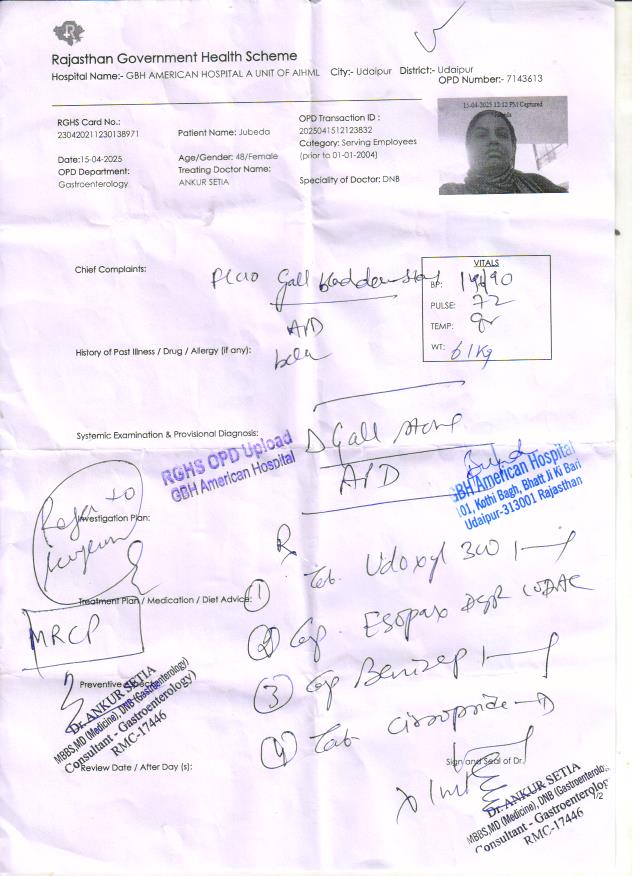 R
Rajasthan Government Health Scheme
Hospital Name:- GBH AMERICAN HOSPITAL A UNIT OF AIHML City:- Udaipur District:- Udaipur
OPD Number:- 7143613
RGHS Card No.:
230420211230138971
Patient Name: Jubeda
OPD Transaction ID :
2025041512123832
Category: Serving Employees
(prior to 01-01-2004)
15-04-2025 12:12 PM Captured
Date:15-04-2025
OPD Department:
Gastroenterology
Age/Gender: 48/Female
Treating Doctor Name:
ANKUR SETIA
Speciality of Doctor: DNB
Chief Complaints:
Gall bladder
VITALS
BP:
PULSE: 72
TEMP:
WT: 61Kg
APD
History of Past Illness / Drug / Allergy (if any):
Systemic Examination & Provisional Diagnosis:
Gall stone
APD
RGHS OPD Upload
GBH American Hospital
GBH American Hospital
101, Kothi Bagh, Bhatt Ji Ki Bari
Udaipur-313001 Rajasthan
to
Investigation Plan:
Rx
Treatment Plan / Medication / Diet Advice:
① Tab. Udoxyl 300 1
② Cap. Esopax DSR
MRCP
③ Cap Benizep 1
Preventive
④ Tab. Cisopride
Dr. ANKUR SETIA
MBBS,MD (Medicine), DNB (Gastroenterology)
Consultant - Gastroenterology)
RMC-17446
Sign and Seal of Dr.
Review Date / After Day (s):
Dr. ANKUR SETIA
MBBS,MD (Medicine), DNB (Gastroenterolo
Consultant - Gastroenterolog
RMC-17446
1/2